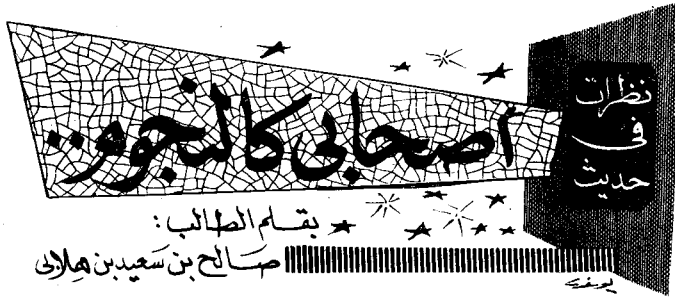 نظرات
في
حديث
أصحابي كالنجوم..
بقلم الطالب:
صالح بن سعيد بن هلابي